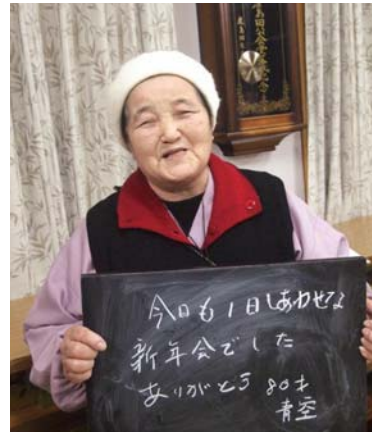 今日も1日しあわせな
新年会でした
ありがとう 80才
青空